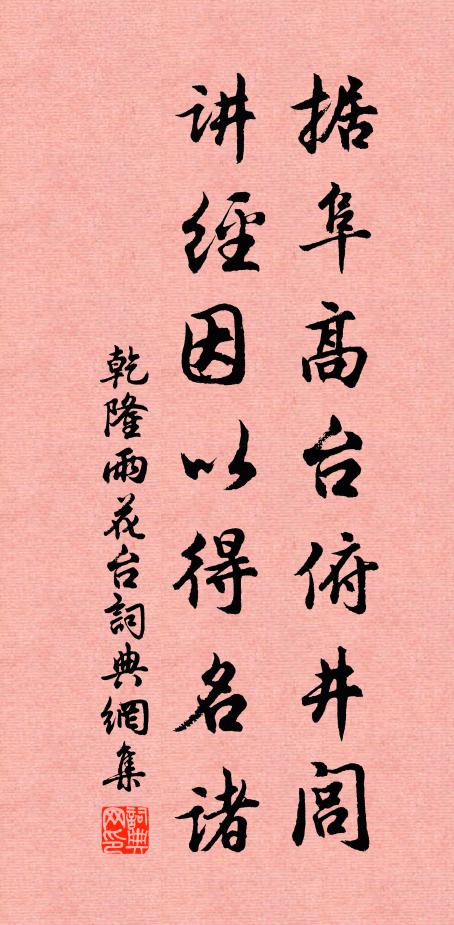 据阜高台俯井闾
讲經因以得名诸
乾隆雨花台詞典網集
詞典网印